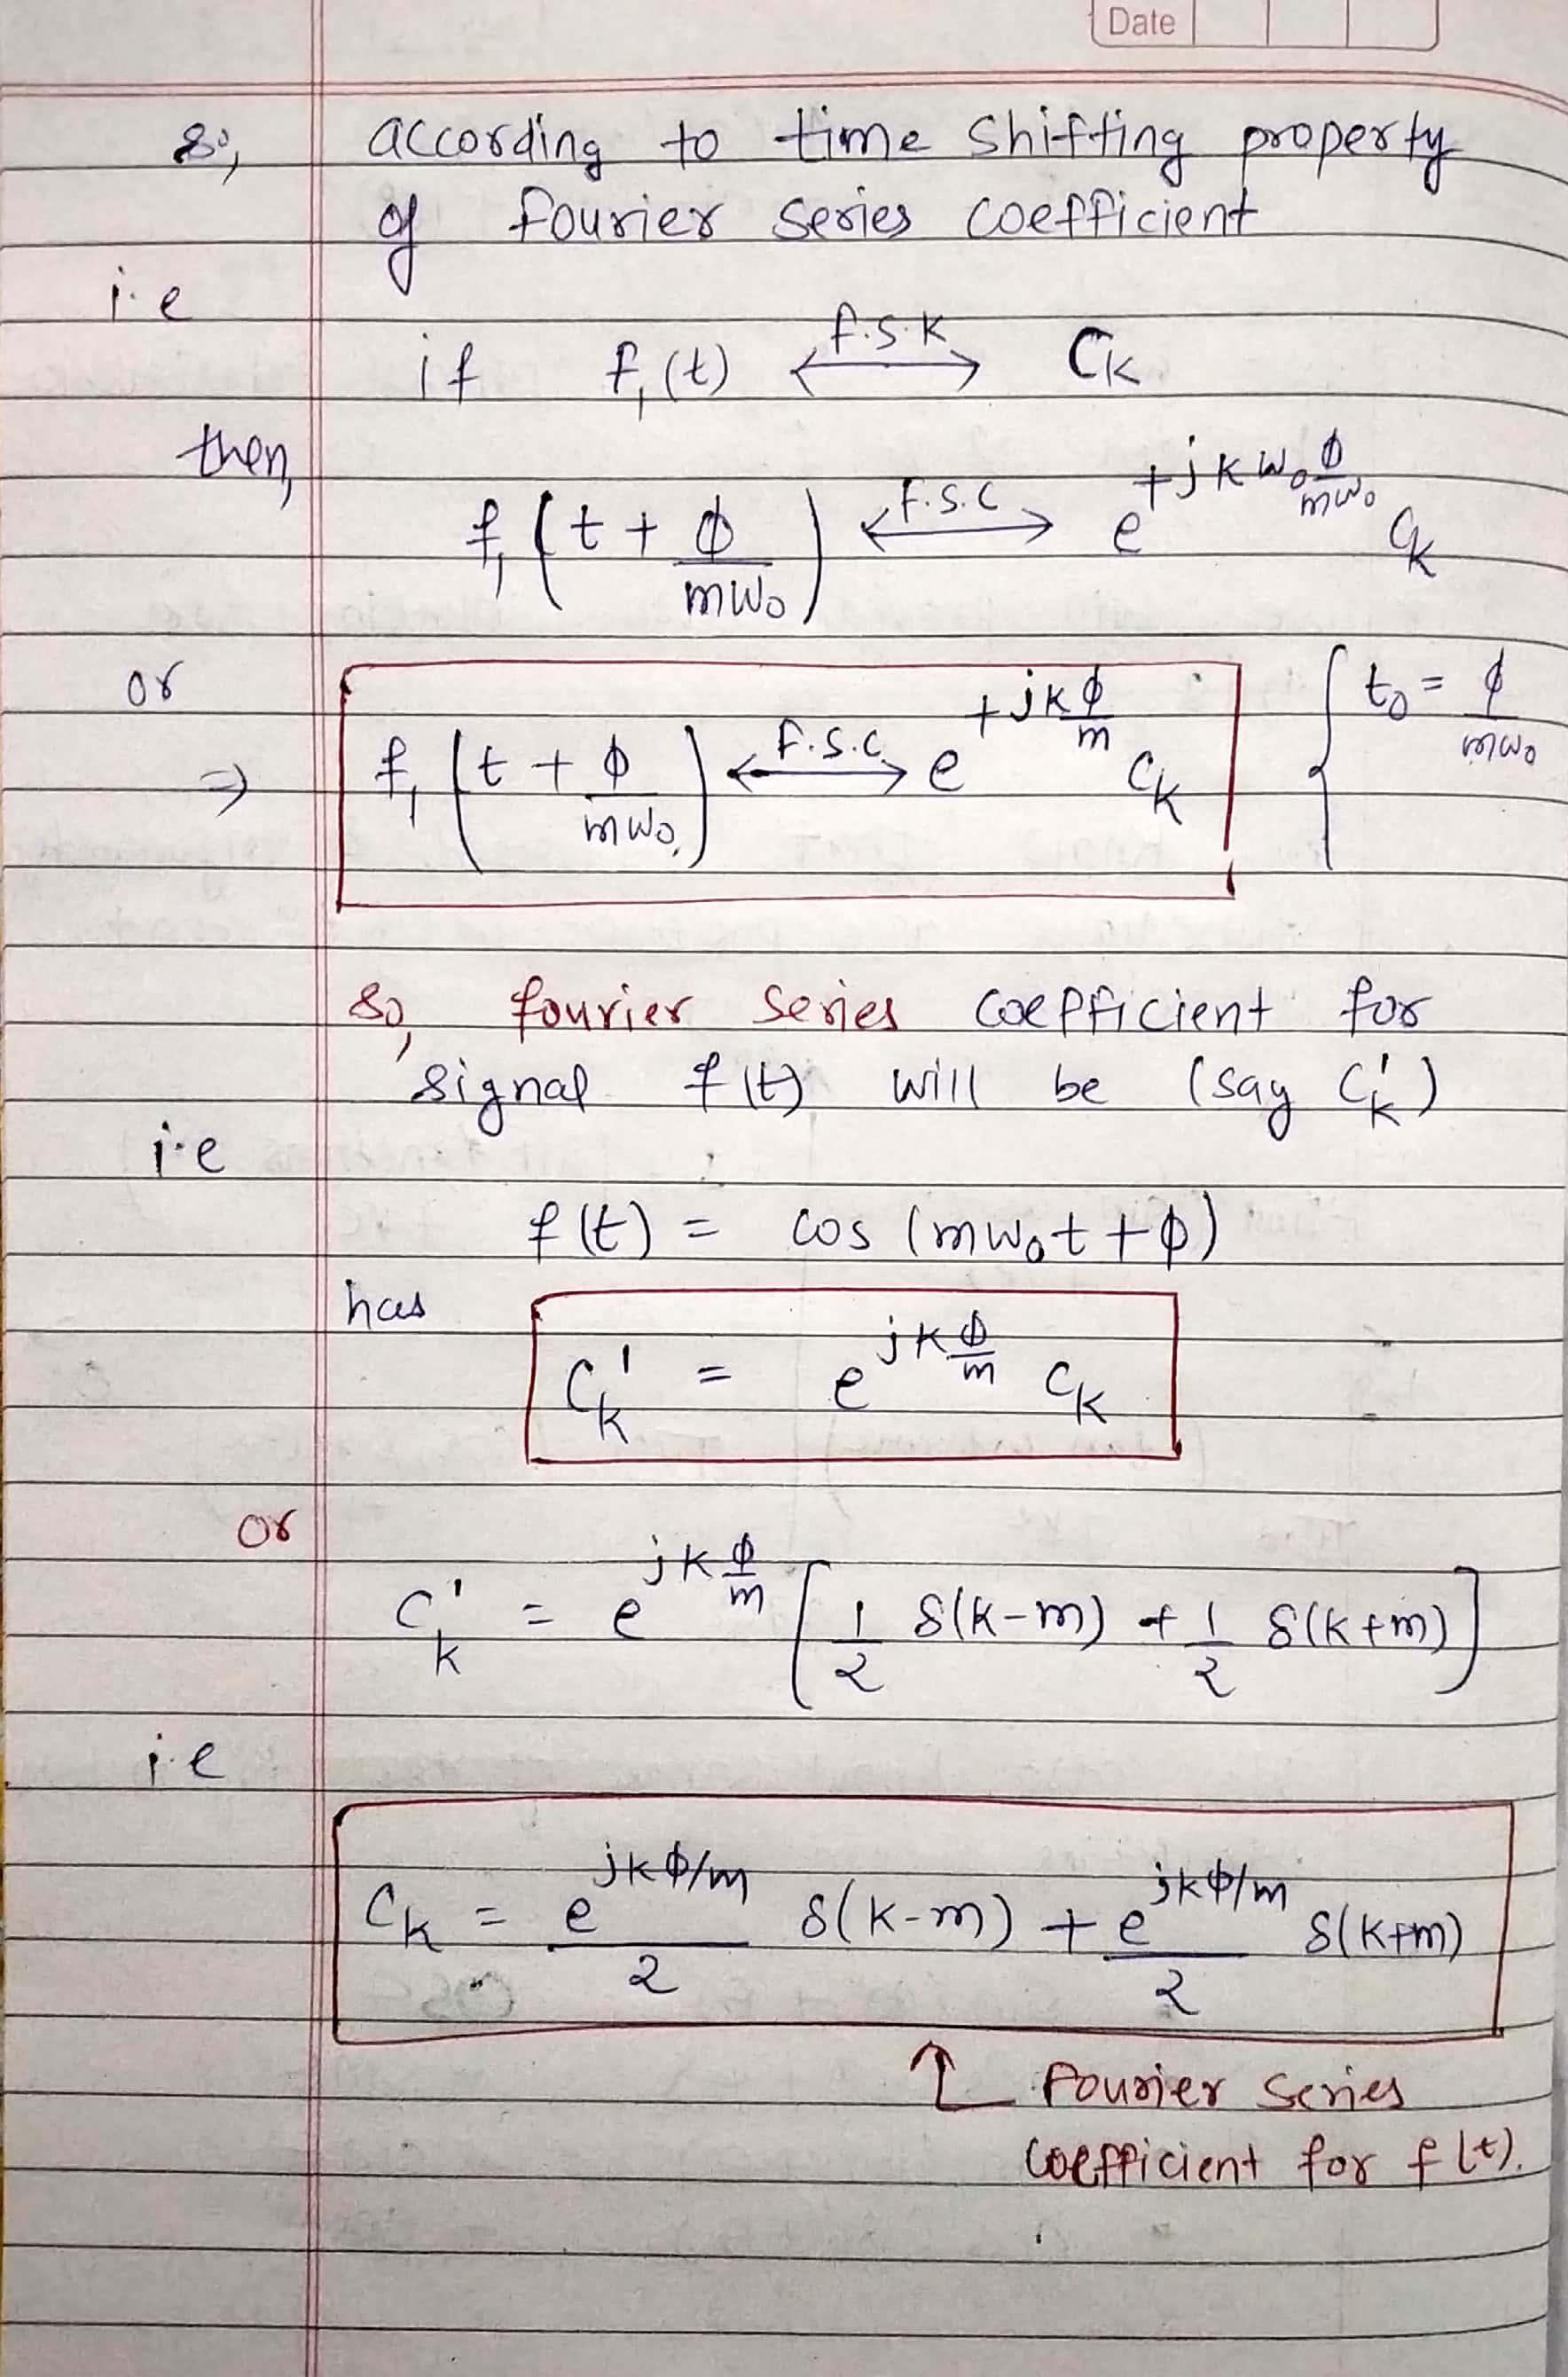 Date
so, according to time shifting property
of fourier series coefficient
i.e
if f₁(t) <--F.S.K--> Cₖ
then,
f₁(t + ϕ/mω₀) <--F.S.C--> e^(+jkω₀ϕ/mω₀) Cₖ
or
⇒ f₁(t + ϕ/mω₀) <--F.S.C--> e^(+jkϕ/m) Cₖ { t₀ = ϕ/mω₀
so, fourier series coefficient for
signal f(t) will be (say Cₖ')
i.e
f(t) = cos(mω₀t + ϕ)
has
Cₖ' = e^(jkϕ/m) Cₖ
or
Cₖ' = e^(jkϕ/m) [1/2 δ(k-m) + 1/2 δ(k+m)]
i.e
Cₖ = e^(jkϕ/m)/2 δ(k-m) + e^(jkϕ/m)/2 δ(k+m)
↑ Fourier series
coefficient for f(t).